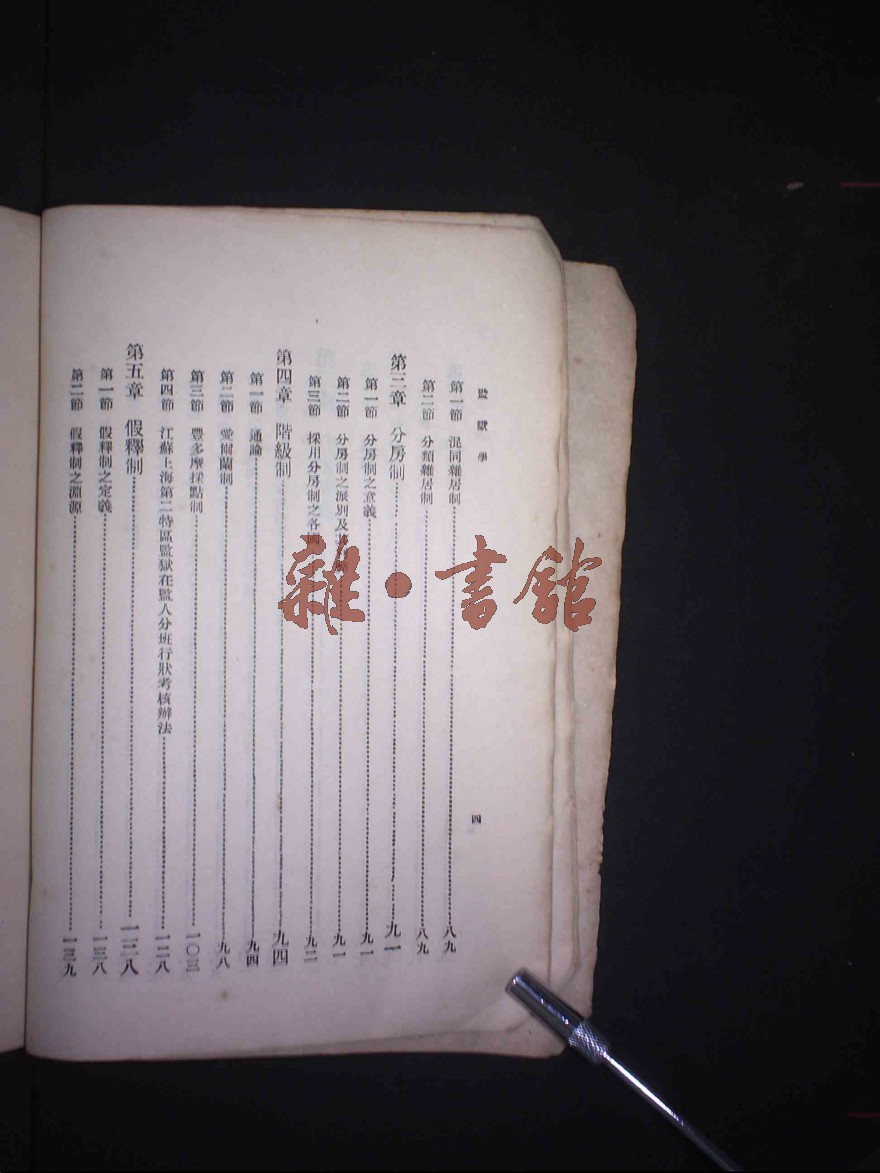 監獄學
四
第一節 混同雜居制 八九
第二節 分類雜居制 八九
第三章 分房制 九一
第一節 分房制之意義 九一
第二節 分房制之派別及 九一
第三節 採用分房制之各國 九二
第四章 階級制 九四
第一節 通論 九四
第二節 愛爾蘭制 九八
第三節 豐多摩採點制 一〇三
第四節 江蘇上海第二特區監獄在監人分班行狀考核辦法 一二八
第五章 假釋制 一三八
第一節 假釋制之定義 一三八
第二節 假釋制之淵源 一三九
雜·書館